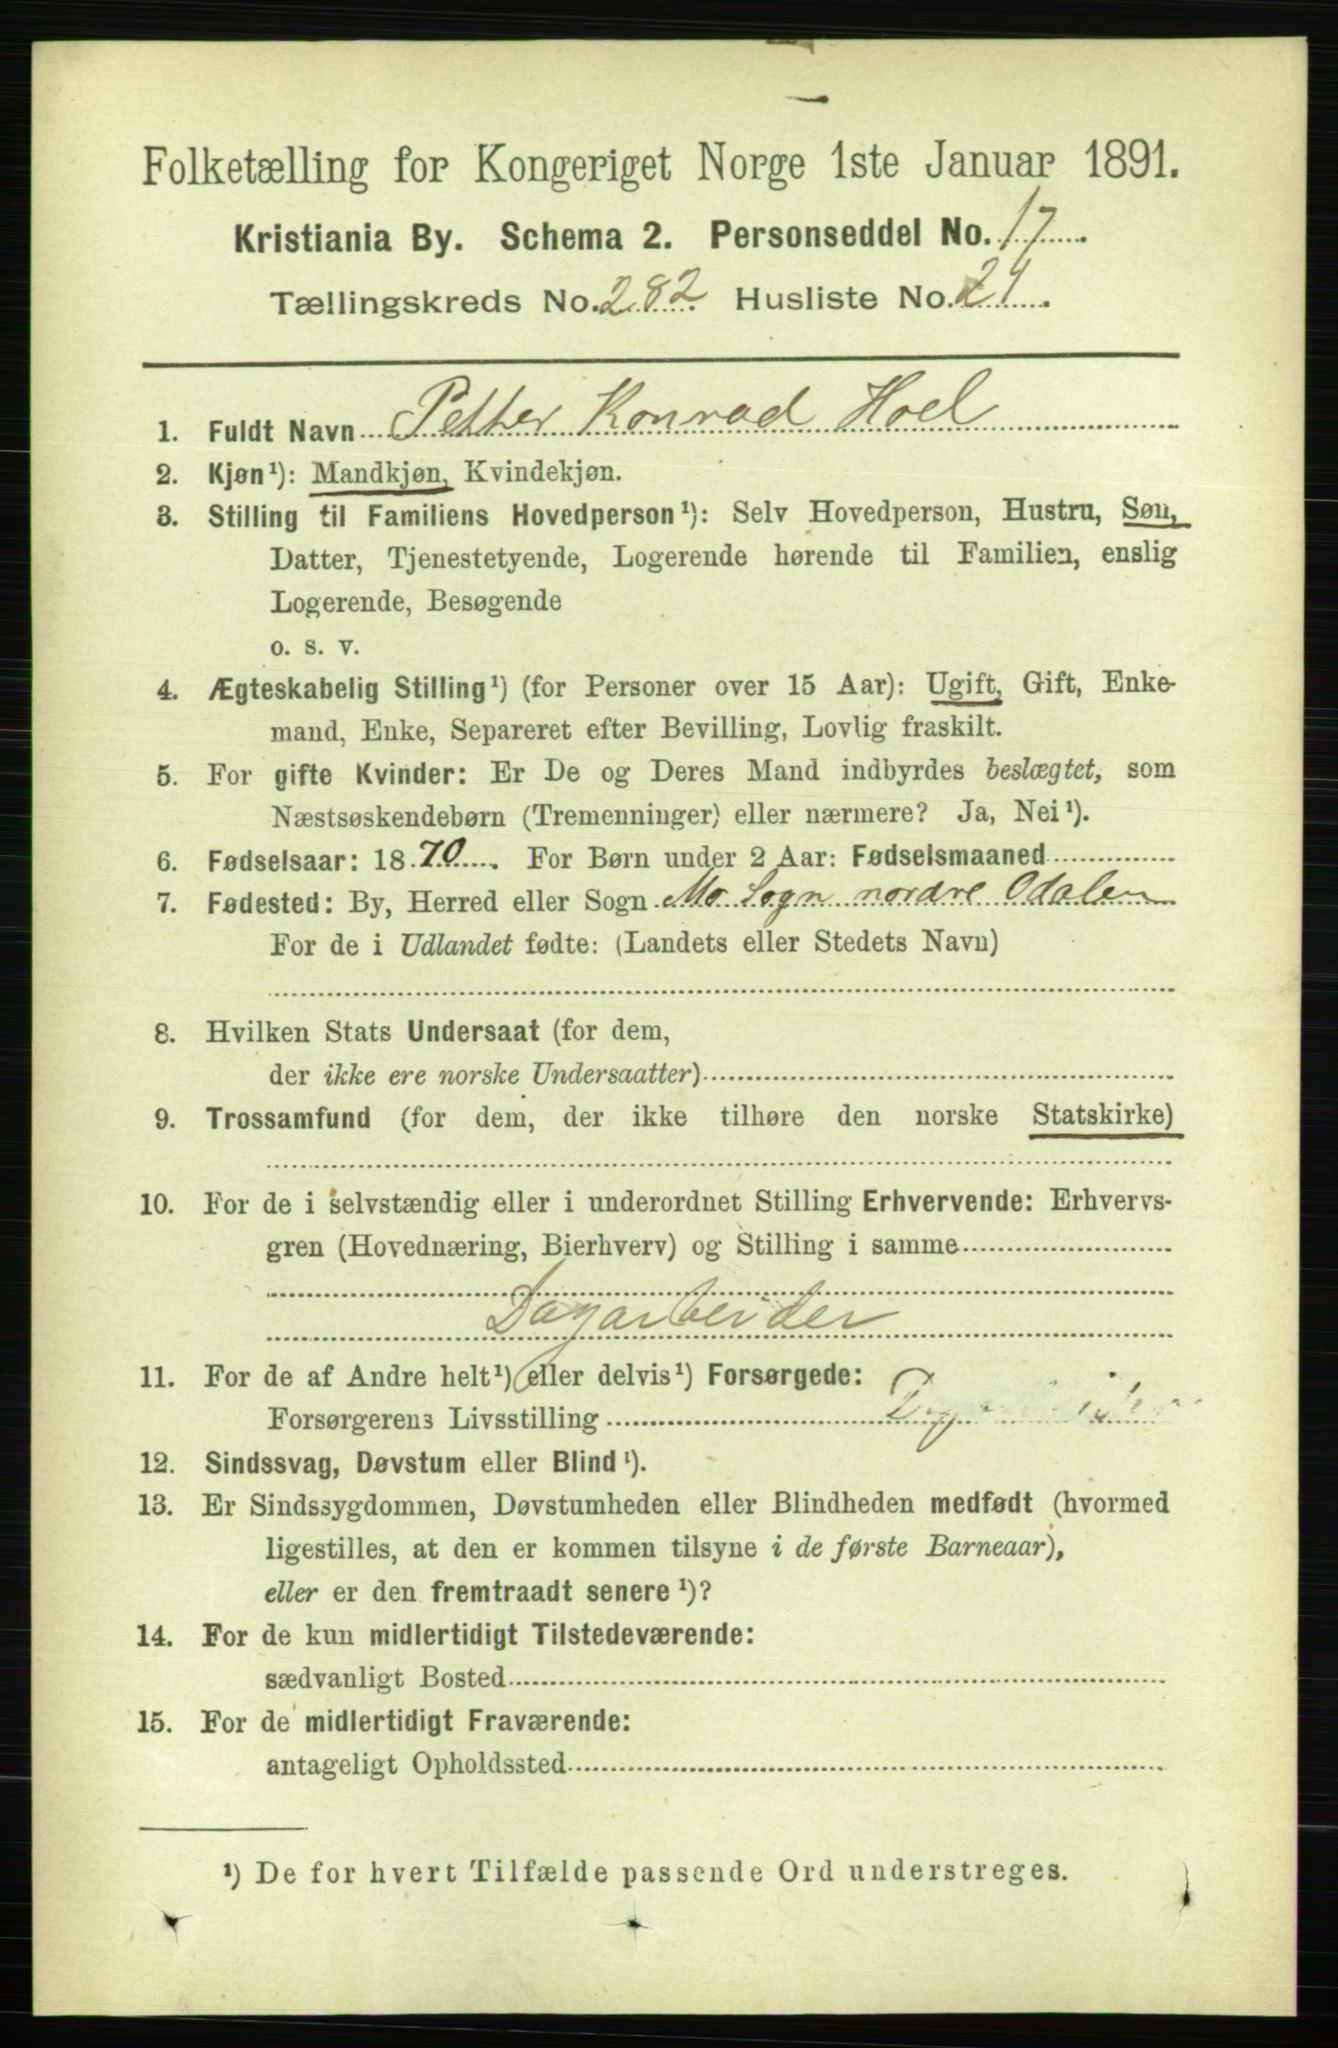 Folketælling for Kongeriget Norge 1ste Januar 1891.
Kristiania By. Schema 2. Personseddel No. 17
Tællingskreds No. 282 Husliste No. 21
1. Fuldt Navn Petter Konrad Hoel
2. Kjøn¹): Mandkjøn, Kvindekjøn.
3. Stilling til Familiens Hovedperson¹): Selv Hovedperson, Hustru, Søn,
Datter, Tjenestetyende, Logerende hørende til Familien, enslig
Logerende, Besøgende
o. s. v.
4. Ægteskabelig Stilling¹) (for Personer over 15 Aar): Ugift, Gift, Enke-
mand, Enke, Separeret efter Bevilling, Lovlig fraskilt.
5. For gifte Kvinder: Er De og Deres Mand indbyrdes beslægtet, som
Næstsøskendebørn (Tremenninger) eller nærmere? Ja, Nei¹).
6. Fødselsaar: 1870. For Børn under 2 Aar: Fødselsmaaned
7. Fødested: By, Herred eller Sogn Mo Sogn nordre Odalen
For de i Udlandet fødte: (Landets eller Stedets Navn)
8. Hvilken Stats Undersaat (for dem,
der ikke ere norske Undersaatter)
9. Trossamfund (for dem, der ikke tilhøre den norske Statskirke)
10. For de i selvstændig eller i underordnet Stilling Erhvervende: Erhvervs-
gren (Hovednæring, Bierhverv) og Stilling i samme
Dagarbeider
11. For de af Andre helt¹) eller delvis¹) Forsørgede:
Forsørgerens Livsstilling
12. Sindssvag, Døvstum eller Blind¹).
13. Er Sindssygdommen, Døvstumheden eller Blindheden medfødt (hvormed
ligestilles, at den er kommen tilsyne i de første Barneaar),
eller er den fremtraadt senere¹)?
14. For de kun midlertidigt Tilstedeværende:
sædvanligt Bosted
15. For de midlertidigt Fraværende:
antageligt Opholdssted
¹) De for hvert Tilfælde passende Ord understreges.